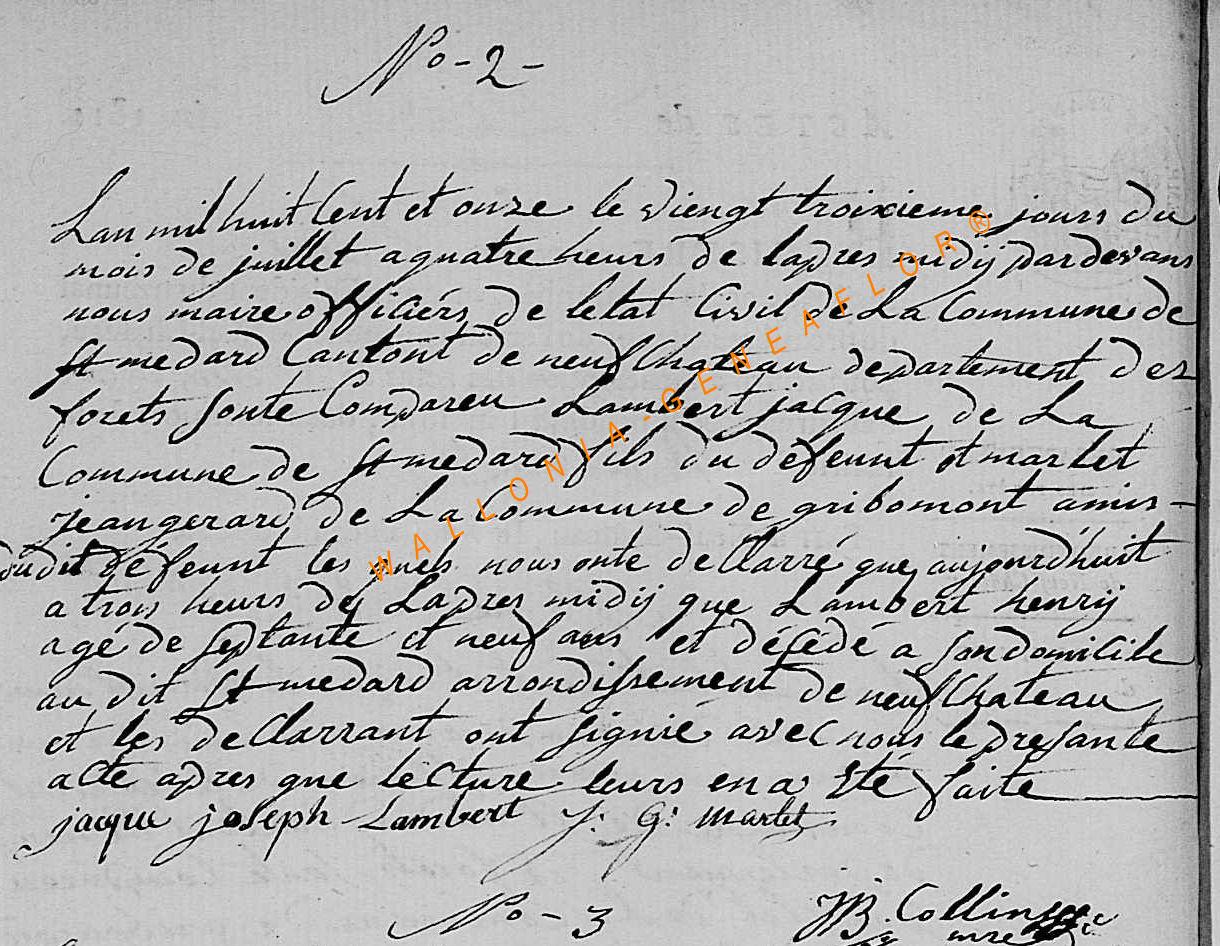 No - 2 -
Lan mil huit Cent et onze le viengt troixieme jours du
mois de juillet a quatre heurs de lapres midij pardevans
nous maire officiérs de letat Civil de La Commune de
St medard Cantont de neufChateau departement des
forets sonte Compareu Lambert jacque de La
Commune de St medard fils du defeunt et marlet
jean gerard de La Commune de gribomont amis -
du dit defeunt les quels nous onte deClarré que aujourd'huit
a trois heurs dej Lapres midij que Lambert henrij
agé de septante et neuf ans et décédé a son domicile
au dit St medard arrondissement de neufChateau
et les deClarrant ont signié avec nous le presante
acte apres que leCture leurs en a été faite
jacque joseph Lambert J: G: marlet
No - 3
JB. Collin
mre
WALLONIA-GENEAFLOR®